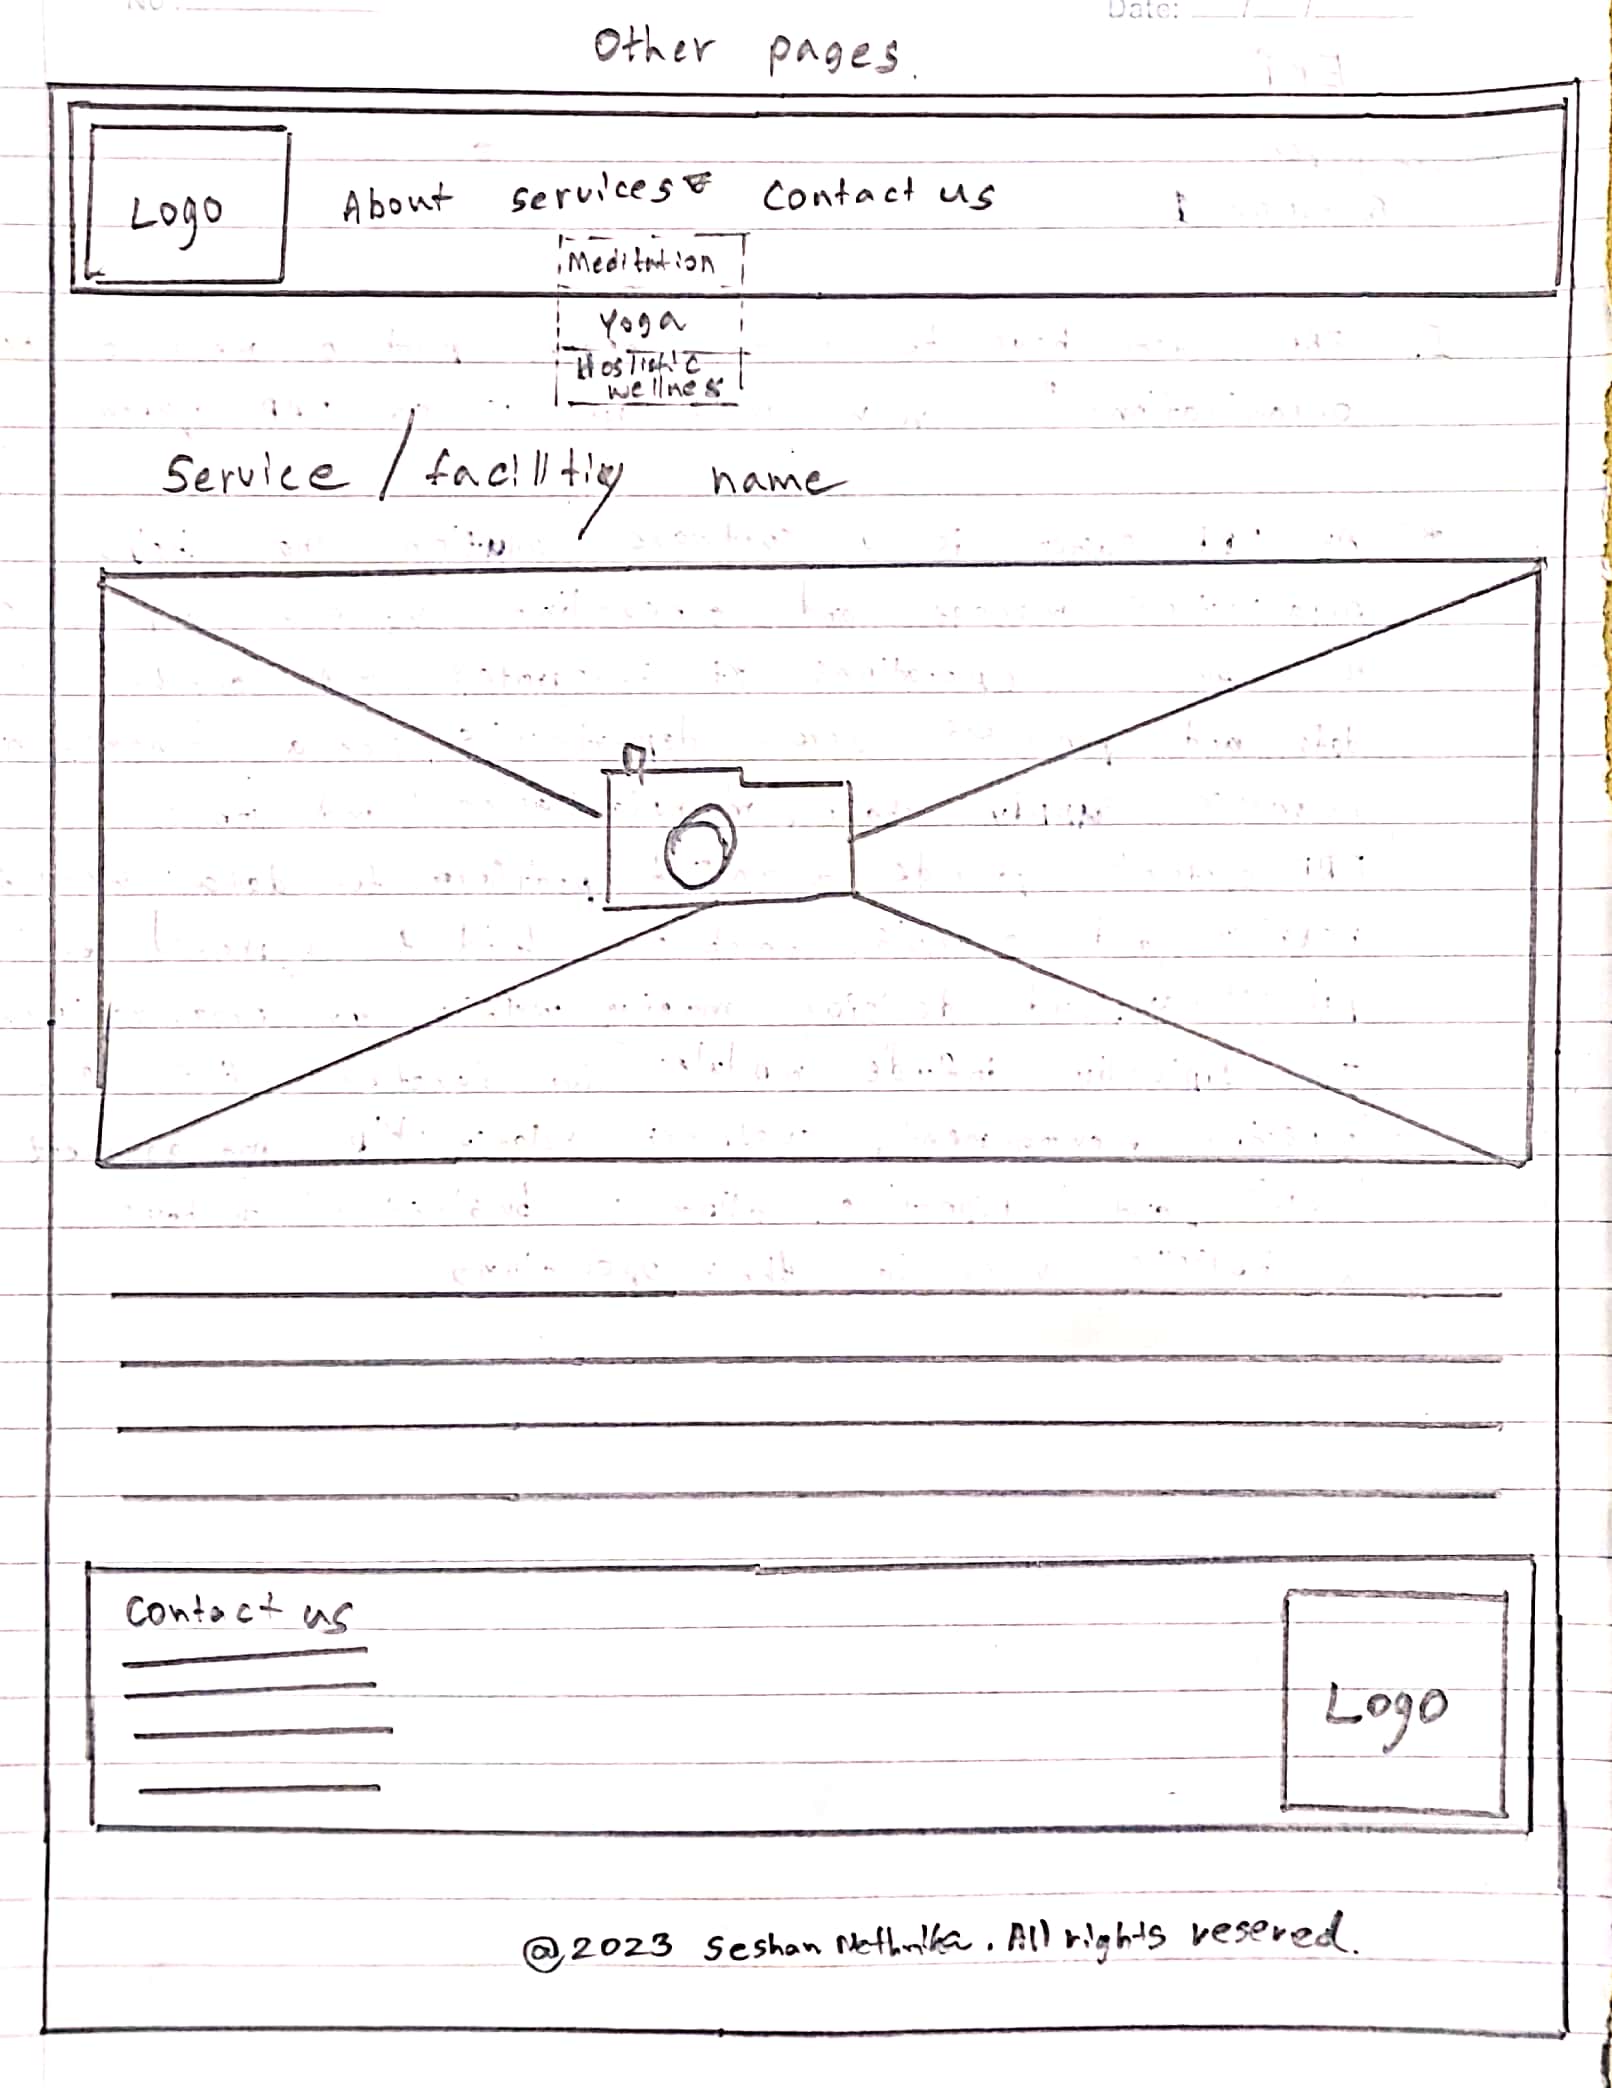 Date:
Other pages.
Logo About services Contact us
Meditation
Yoga
Wellness
Service / name
Contact us
Logo
@2023 Seshan . All rights resered.